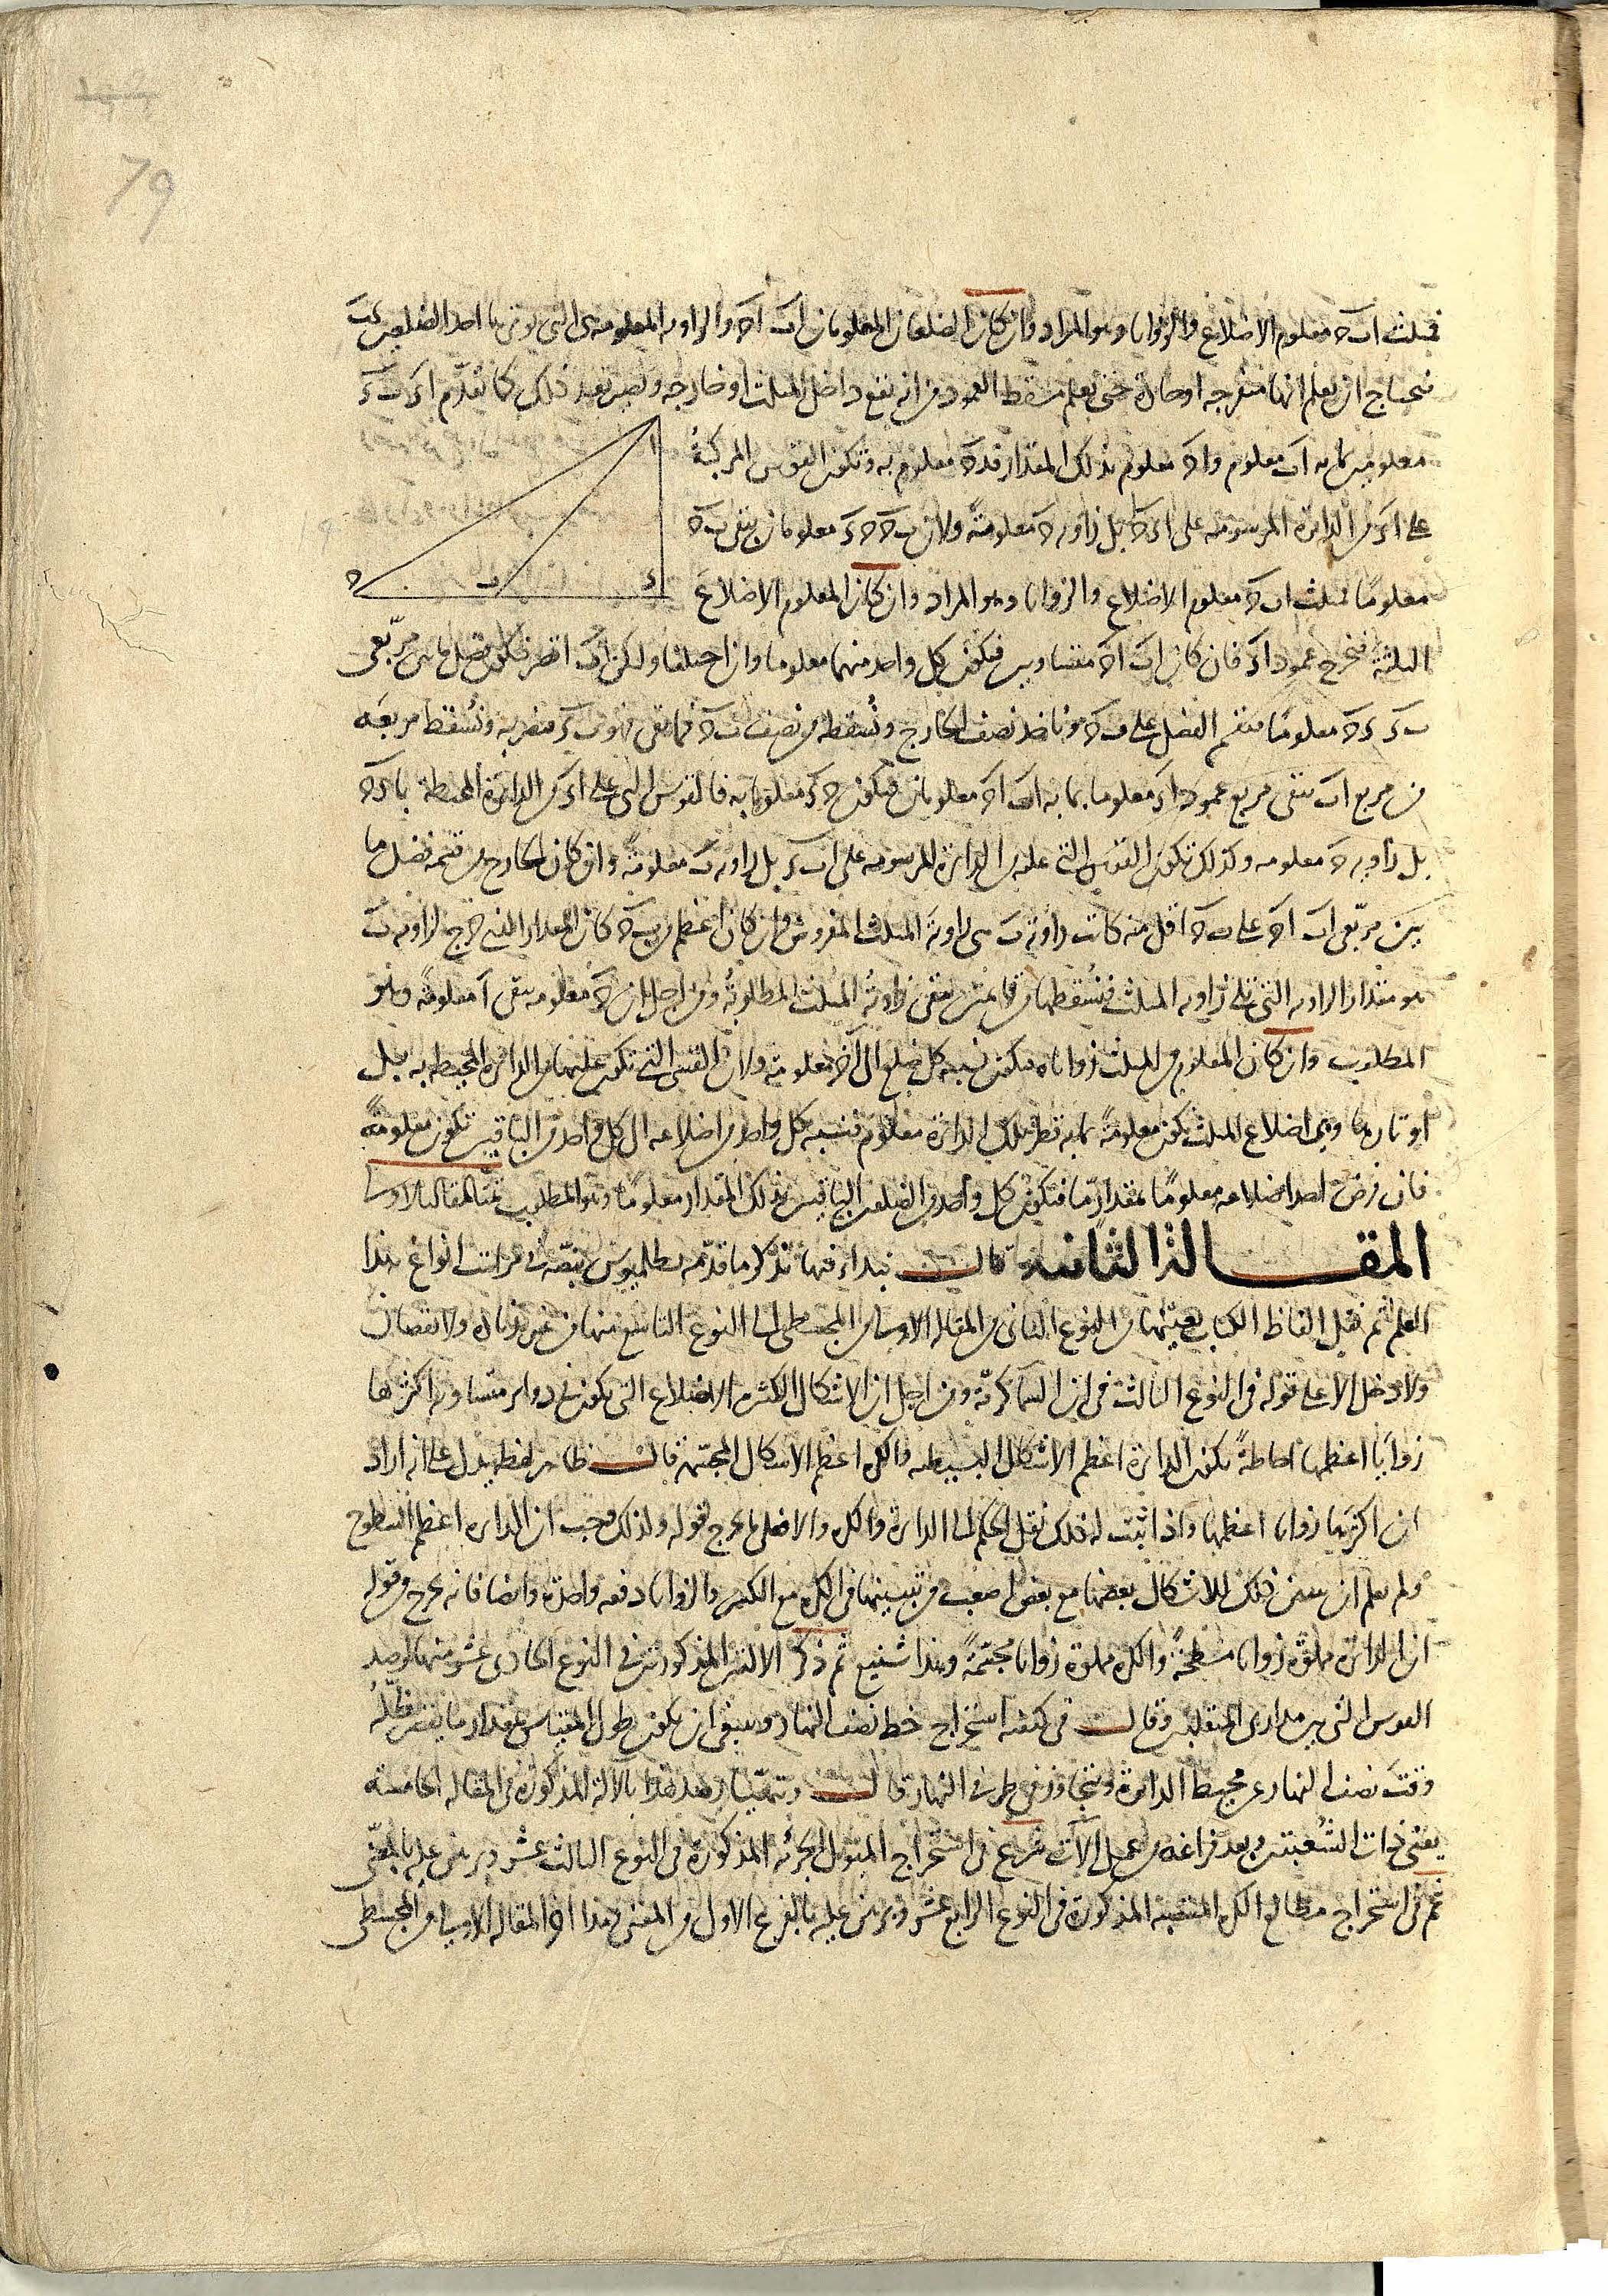 79
فمثلث اب ح معلوم الاضلاع والزوايا وهو المراد وان كان الضلعان المعلومان اب اح والزاوية المعلومة هى التى يوترها احد الضلعين كب
فنحتاج ان يعلم انها منفرجه او حادة حتى يعلم مسقط العمود من انه يقع داخل المثلث او خارجه ويصير بعد ذلك كما تقدّم اء ب ء
معلومين بما به اب معلوم و اح معلوم بذلك المقدار فد ح معلوم به وتكون القوس المركبة
ا
على اء من الدائرة المرسومه على اء ح بل زاويه ح معلومةً ولان ب ح ح ء معلومان يبقى ب ح
معلومًا فمثلث اب ح معلوم الاضلاع والزوايا وهو المراد وان كان المعلوم الاضلاع
ء ب ح
الثلثة فنخرج عمود اء فان كان اب اح متساويين فيكون كل واحد منهما معلوما وان اختلفا وليكن اب اقصر فيكون فضل ما بين مربّعى
ب ء ء ح معلومًا فنقسم الفضل على ب ح وناخذ نصف الخارج ونُسقطه من نصف ب ح فما بقى فهو ب ء فنضربه ونُسقط مربعَه
من مربع اب يبقى مربع عمود اء معلوما بما به اب اح معلومان فيكون ح ء معلومًا به فالقوس التى على اء من الدائرة المحيطة با ء ح
بل زاويه ح معلومه وكذلك تكون القوس التى عليه من الدائرة المرسومه على اب ء بل زاويه ب معلومةً وان كان الخارج من قسمه فضل ما
بين مربّعى اب اح على ب ح اقل منه كانت زاوية ب هى زاوية المثلث المفروض وان كان اعظم من ب ح كان المقدار الذى خرج لزاويه ب
هو مقدار الزاويه التى تلى زاويه المثلث فنُسقطها من قايمتين يبقى زاويةُ المثلث المطلوبةُ ومن اجل ان ح معلومه يبقى ا معلومةً وهو
المطلوب وان كان المعلوم من المثلث زواياه فيكون نسبه كل ضلع الى الاخر معلومة ولان القسى التى تكون عليها من الدائرة المحيطه به بل
اوتارها وهى اضلاع المثلث تكون معلومةً بما به قطر تلك الدائرة معلوم فنسبه كل واحد من اضلاعه الى كل واحد من الباقيين تكون معلومةً
فان فرض احد اضلاعه معلومًا بمقدارٍ ما فيكون كل واحد من الضلعين الباقيين بذلك المقدار معلومًا وهو المطلوب تمت المقالة الاولى
المقــالة الثانيه قال نبداء فيها بذكر ما قدّمه بطلميوس بنصّه فى مراتب انواع هذا
العلم ثم نقل الفاظ الكتاب بعينها من النوع الثانى من المقاله الاولى من المجسطى الى النوع التاسع منها من غير زياده ولا نقصان
ولا دخل الا على قوله فى النوع الثالث فى ان السما كريّة ومن اجل ان الاشكال الكثيره الاضلاع التى يكون فى دواير متساويه اكثرها
زوايًا اعظمها احاطةً تكون الدائرة اعظم الاشكال البسيطه والكره اعظم الاشكال المجسّمة قال ظاهر لفظه يدل على انه اراد
ان اكثرها زوايا اعظمها واذا ثبت له ذلك نقل الحكم الى الدائرة والكره والا فلم يخرج قوله ولذلك وجب ان الدائره اعظم السطوح
ولم يعلم ان معنى ذلك للاشكال بعضها مع بعض صعب من تبيينها فى الكل مع الكثير والزوايا دفعه واحدة وايضا فانه يخرج من قوله
ان الدائره مملوّه زوايا مسطحةً والكره مملوة زوايا مجسّمةً وهذا شنيع ثم ذكر الالتين المذكورتين فى النوع الحادى عشر منها لرصد
القوس التى بين مدارى المنقلبين وقال فى كيفيه استخراج خط نصف النهار وينبغى ان يكون طول المقياس مقدار ما يقصر ظلّه
وقت نصف النهار عن محيط الدائرة ويتجاوزه فى طرفى النهار قال وتمتحن ارصد هذا بالالة المذكورة فى المقاله الخامسه
يعنى ذات الشعبتين وبعد فراغه من عمل الآلات شرع فى استخراج الميول الجزئيه المذكورة فى النوع الثالث عشر وبرهن عليه بالمغنى
ثم فى استخراج مطالع الكره المنتصبه المذكورة فى النوع الرابع عشر وبرهن عليه بالفرع الاول من المغنى وهذا اخر المقاله الاولى من المجسطى